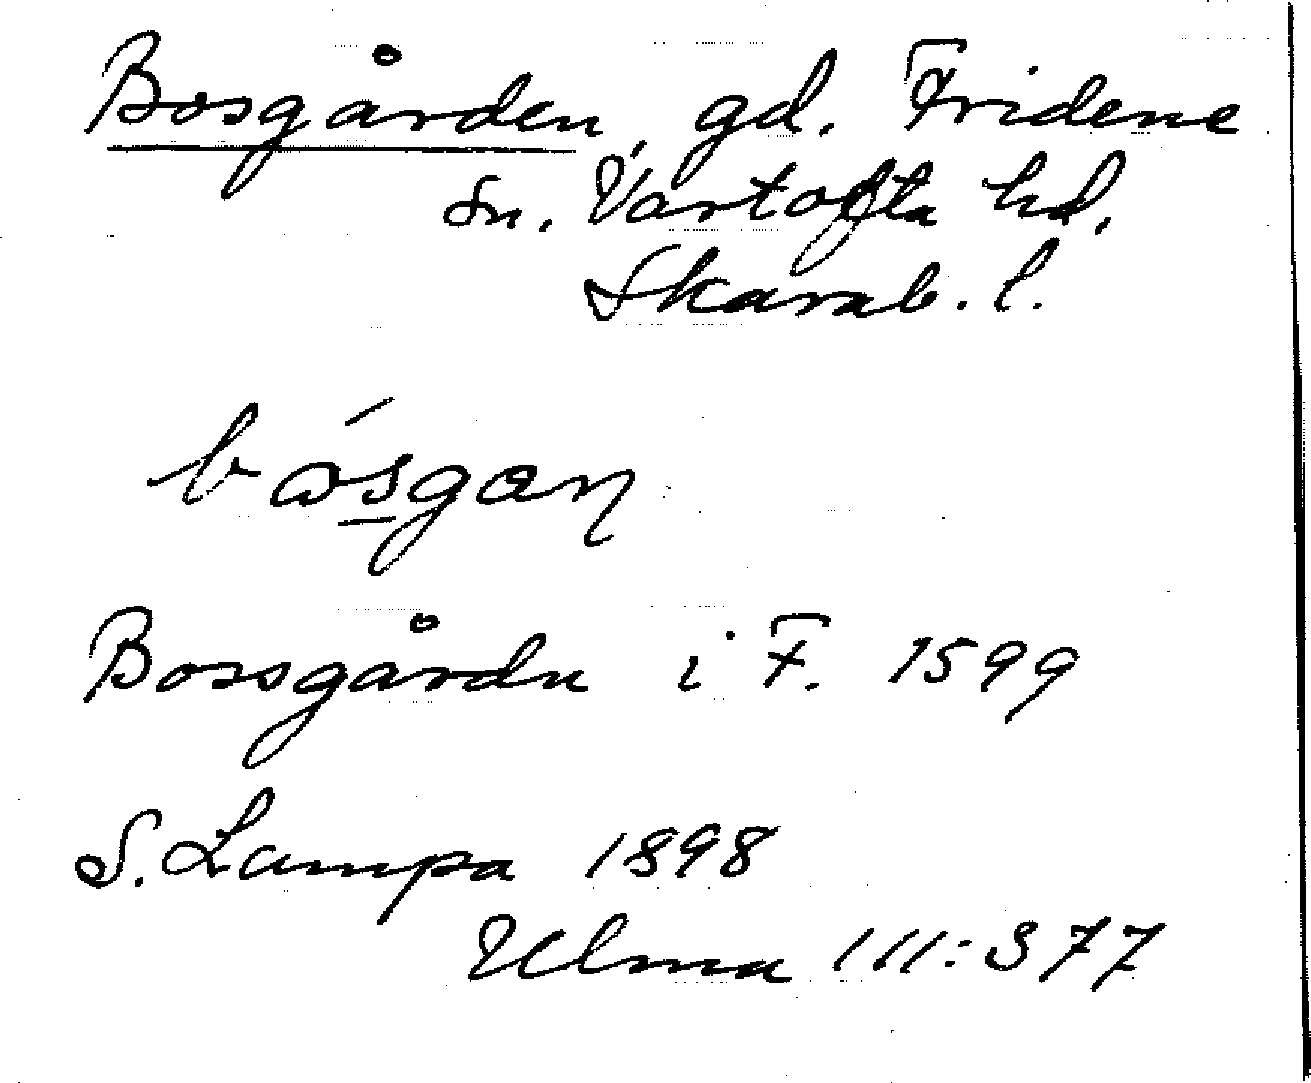 Bosgården, gd. Fridene
sn. Vartofta hd.
Skarab. l.
Bossgårdn i F. 1599
S. Lampa 1898
Ulma 111:377